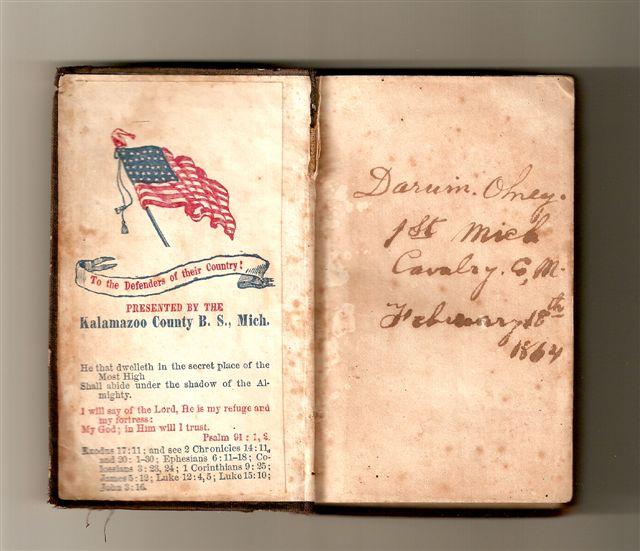 To the Defenders of their Country!
PRESENTED BY THE
Kalamazoo County B. S., Mich.
He that dwelleth in the secret place of the
Most High
Shall abide under the shadow of the Al-
mighty.
I will say of the Lord, He is my refuge and
my fortress:
My God; in Him will I trust.
Psalm 91: 1, 2.
Exodus 17:11; and see 2 Chronicles 14:11,
and 20: 1-30; Ephesians 6:11-18; Co-
lossians 3:23, 24; 1 Corinthians 9:25;
James 5:12; Luke 12:4,5; Luke 15:10;
John 3:16.
Darwin. Olney.
1st Mich
Cavalry. M.
February 18th
1864